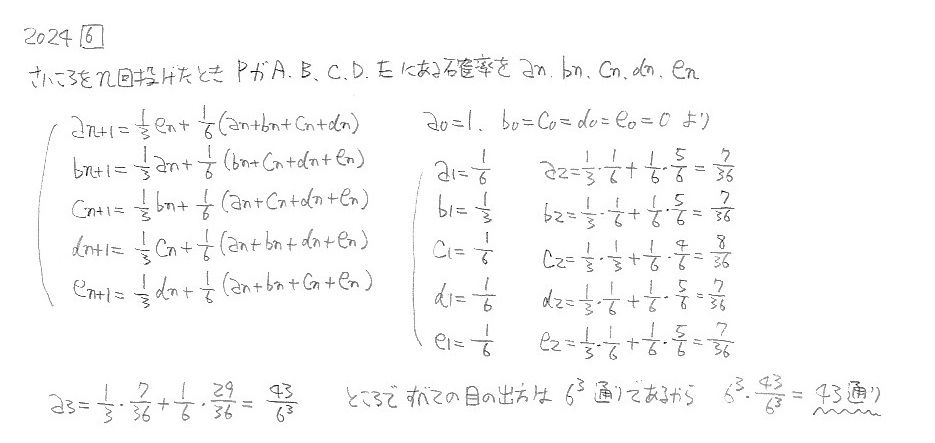 2024 6
さいころをn回投げたとき PがA.B、C.D.Eにある確率を an. bn. cn. dn. en
an+1=1/3en+1/6(an+bn+cn+dn)
bn+1=1/3an+1/6(bn+cn+dn+en)
cn+1=1/3bn+1/6(an+cn+dn+en)
dn+1=1/3cn+1/6(an+bn+dn+en)
en+1=1/3dn+1/6(an+bn+cn+en)
a0=1、b0=c0=d0=e0=0 より
a1=1/6 a2=1/3・1/6+1/6・5/6=7/36
b1=1/3 b2=1/3・1/6+1/6・5/6=7/36
c1=1/6 c2=1/3・1/3+1/6・4/6=8/36
d1=1/6 d2=1/3・1/6+1/6・5/6=7/36
e1=1/6 e2=1/3・1/6+1/6・5/6=7/36
a3=1/3・7/36+1/6・29/36=43/6³ ところで すべての目の出方は 6³通りであるから 6³・43/6³=43通り